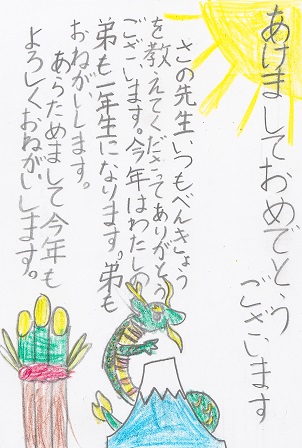 あけましておめでとう
ございます
さの先生いつもべんきょう
を教えてくださってありがとう
ございます。今年はわたしの
弟も一年生になります。弟も
おねがいします。
あらためまして今年も
よろしくおねがいします。